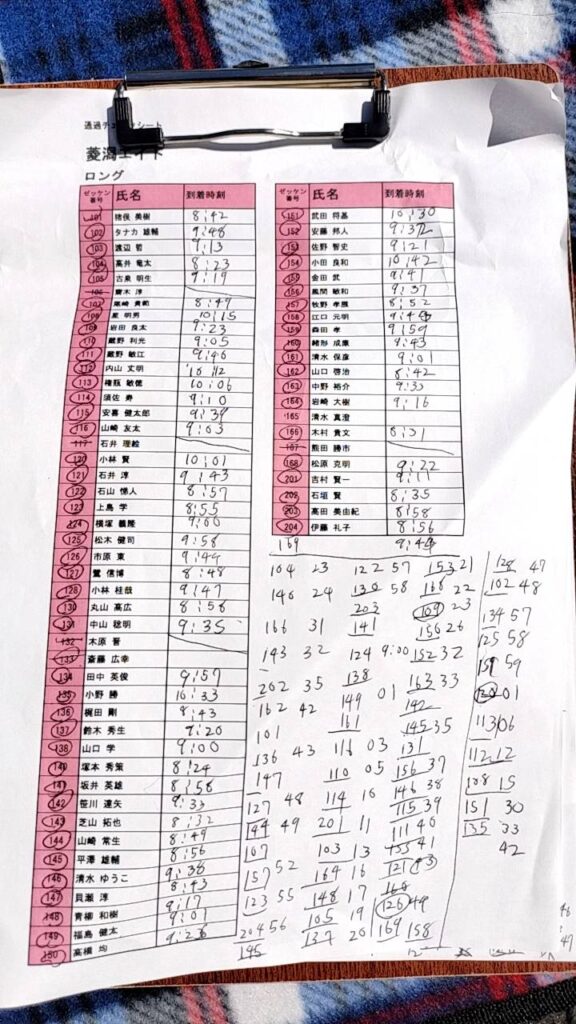 通過チェックシート
菱潟エイト
ロング
ゼッケン番号 氏名 到着時刻
101 猪俣 美樹 8:42
102 タナカ 雄輔 9:48
103 渡辺 哲 9:13
104 高井 竜太 8:23
105 古泉 明生 9:19
106 齋木 淳
107 尾崎 貴範 8:49
108 星 明男 10:15
109 岩田 良太 9:23
110 蔵野 利光 9:05
111 蔵野 敏江 9:46
112 内山 丈明 10:12
113 権瓶 敏徳 10:06
114 須佐 寿 9:10
115 安喜 健太郎 9:39
116 山崎 友太 9:03
117 石井 理絵
120 小林 賢 10:01
121 石井 淳 9:43
122 石山 悌人 8:57
123 上島 学 8:55
124 横塚 義隆 9:00
125 松木 健司 9:58
126 市原 東 9:44
127 鷲 信博 8:48
128 小林 桂哉 9:47
130 丸山 高広 8:58
131 中山 聡明 9:35
132 木原 晋
133 斎藤 広幸
134 田中 英俊 9:57
135 小野 勝 10:33
136 梶田 剛 8:43
137 鈴木 秀生 9:20
138 山口 学 9:00
140 塚本 秀策 8:24
141 坂井 英雄 8:58
142 笹川 達矢 9:33
143 芝山 拓也 8:32
144 山崎 常生 8:49
145 平澤 雄輔 8:56
146 清水 ゆうこ 9:38
147 貝瀬 淳 8:43
148 青柳 和樹 9:17
149 福島 健太 9:01
150 高橋 均 9:26
ゼッケン番号 氏名 到着時刻
151 武田 将基 10:30
152 安藤 邦人 9:32
153 佐野 智史 9:21
154 小田 良和 10:42
155 金田 武 9:41
156 風間 敏和 9:37
157 牧野 孝雁 8:52
158 江口 元明
159 森田 孝 9:59
160 緒形 成康 9:43
161 清水 保彦 9:01
162 山口 啓治 8:42
163 中野 裕介 9:33
164 岩崎 大樹 9:16
165 清水 真澄
166 木村 貴文 8:31
167 熊田 勝市
168 松原 克明 9:22
201 吉村 賢一 9:11
202 石垣 賢 8:35
203 高田 美由紀 8:58
204 伊藤 礼子 8:56
169
104 23 122 57 153 21 128 47
146 24 130 58 168 22 102 48
203 109 23 134 57
166 31 141 156 26 125 58
143 32 124 9:00 152 32 159 59
202 35 138 163 33 120 01
162 42 149 01 142 113 06
101 161 145 35 112 12
136 43 116 03 131 108 15
147 110 05 156 37 151 30
127 48 114 10 146 38 135 33
144 49 201 11 115 39 42
107 103 13 111 46
157 52 164 16 155 41
123 55 148 17 121 43
105 19 160
204 56 137 20 126 44
145 169 158